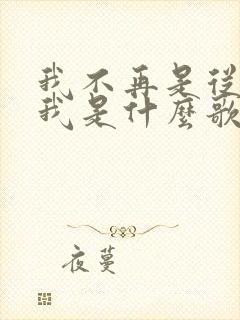 我不再是從
我是什麼歌
夜蔓